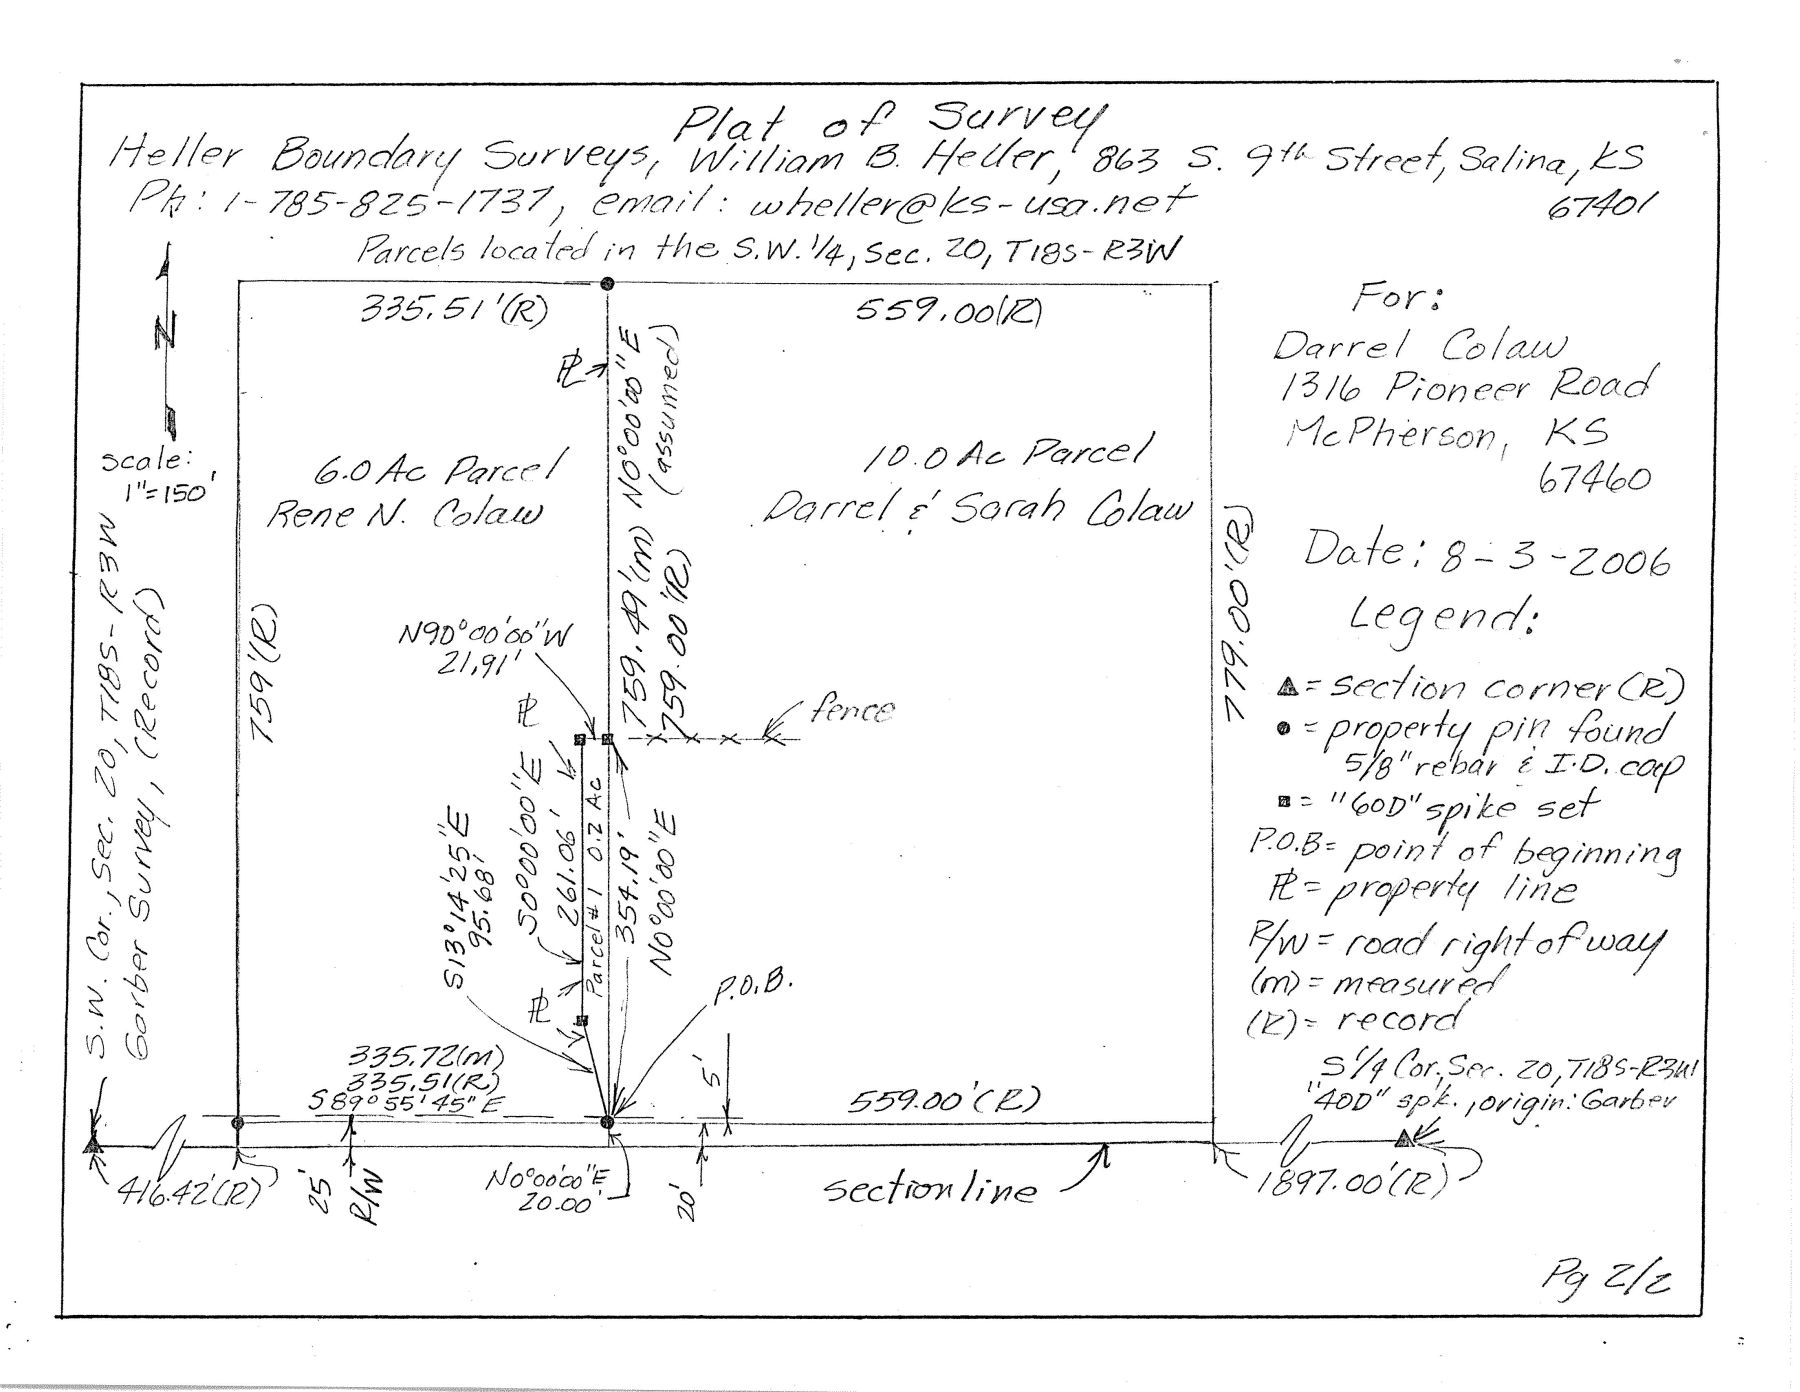 Plat of Survey
Heller Boundary Surveys, William B. Heller, 863 S. 9th Street, Salina, KS
67401
Ph: 1-785-825-1737, email: wheller@ks-usa.net
Parcels located in the S.W. 1/4, Sec. 20, T18S-R3W
N
scale:
1"=150'
335.51'(R)
559.00(R)
For:
Darrel Colaw
1316 Pioneer Road
McPherson, KS
67460
Date: 8-3-2006
PL
N0°00'00"E
(assumed)
6.0 Ac Parcel
Rene N. Colaw
10.0 Ac Parcel
Darrel & Sarah Colaw
759'(R)
759.49'(m)
759.00'(R)
779.00'(R)
N90°00'00"W
21.91'
fence
PL
S0°00'00"E
261.06'
Parcel #1 0.2 Ac
354.19'
N0°00'00"E
S13°14'25"E
95.68'
PL
P.O.B.
S.W. Cor., Sec. 20, T18S-R3W
Garber Survey, (Record)
Legend:
▲ = section corner (R)
● = property pin found
5/8" rebar & I.D. cap
■ = "60D" spike set
P.O.B = point of beginning
PL = property line
R/W = road right of way
(m) = measured
(R) = record
S 1/4 Cor., Sec. 20, T18S-R3W
"40D" spk., origin: Garber
335.72(m)
335.51(R)
S89°55'45"E
5'
559.00'(R)
416.42'(R)
25'
R/W
N0°00'00"E
20.00'
20'
section line
1897.00'(R)
Pg 2/2